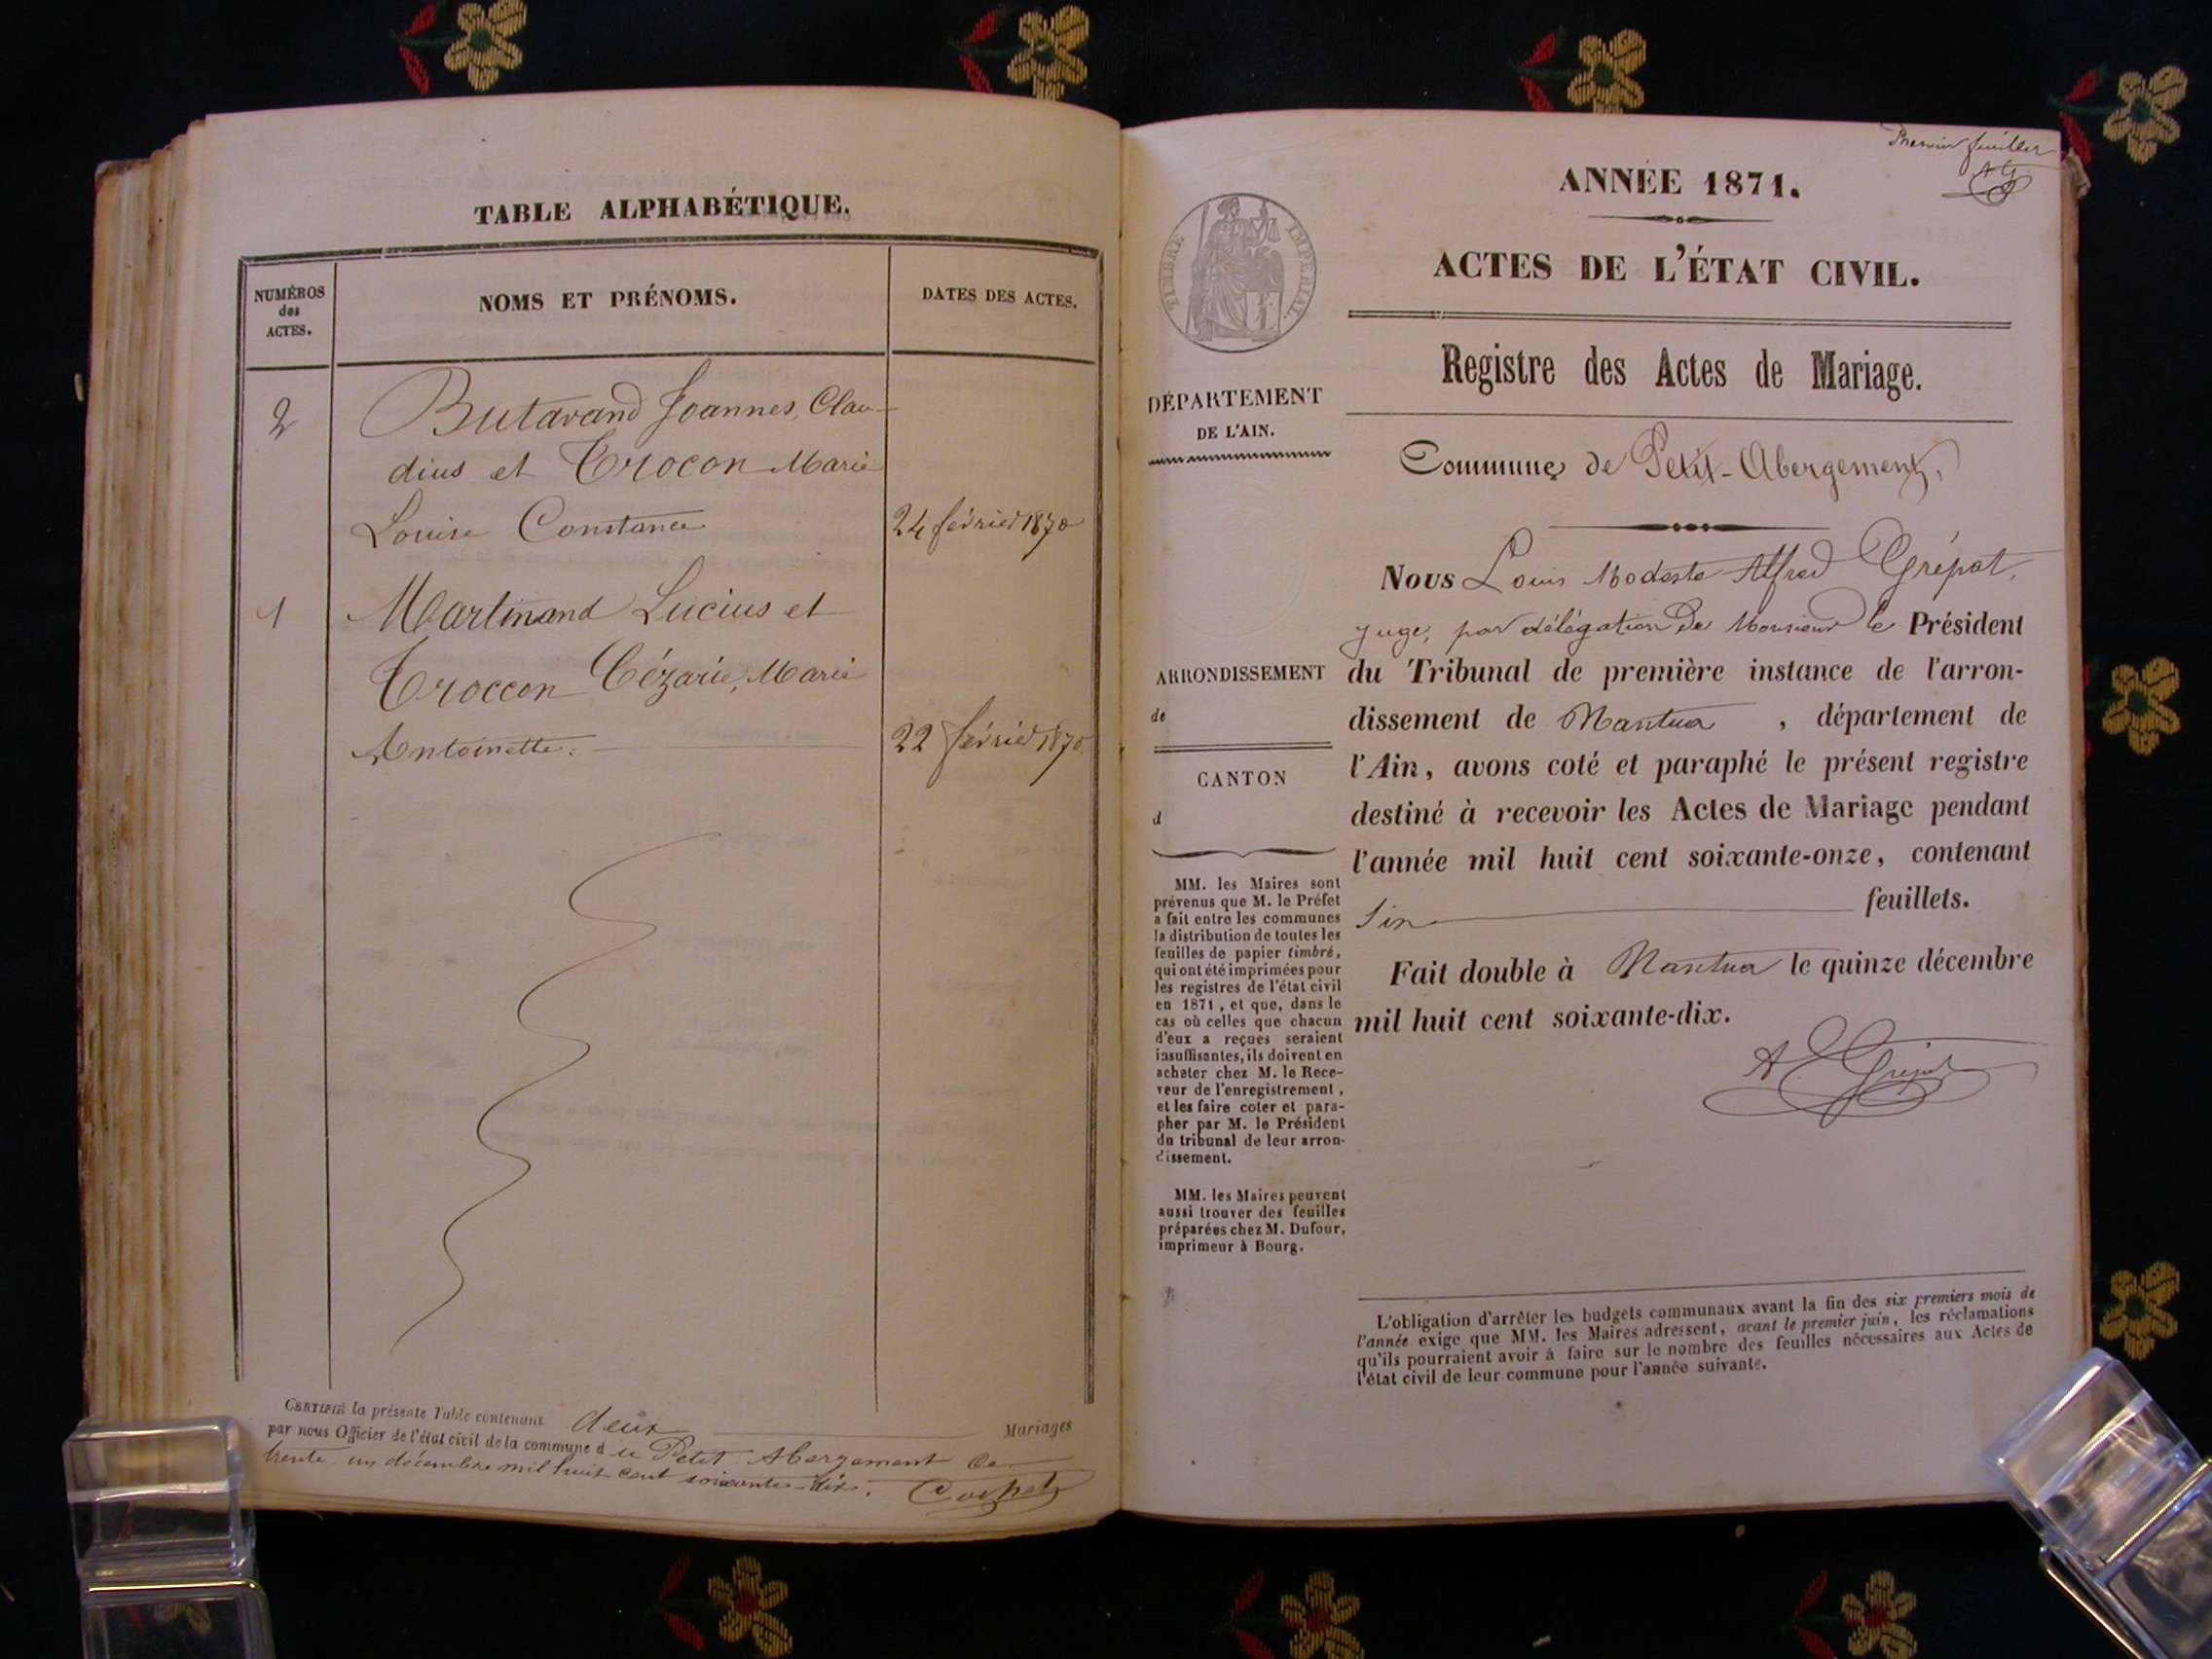 TABLE ALPHABÉTIQUE.
NUMÉROS
des
ACTES.
NOMS ET PRÉNOMS.
DATES DES ACTES.
2 Butavand Joannes, Clau-
dius et Trocon Marie
Louise Constance 24 février 1870
1 Martinand Lucius et
Troccon Cézarie, Marie
Antoinette. 22 février 1870
CERTIFIÉ la présente Table contenant deux Mariages
par nous Officier de l'état civil de la commune d u Petit Abergement le
trente un décembre mil huit cent soixante-dix.
Premier feuillet
AG
ANNÉE 1871.
ACTES DE L'ÉTAT CIVIL.
Registre des Actes de Mariage.
Commune de Petit-Abergement,
TIMBRE IMPÉRIAL.
DÉPARTEMENT
DE L'AIN.
ARRONDISSEMENT
de
CANTON
d
MM. les Maires sont
prévenus que M. le Préfet
a fait entre les communes
la distribution de toutes les
feuilles de papier timbré,
qui ont été imprimées pour
les registres de l'état civil
en 1871, et que, dans le
cas où celles que chacun
d'eux a reçues seraient
insuffisantes, ils doivent en
acheter chez M. le Rece-
veur de l'enregistrement,
et les faire coter et para-
pher par M. le Président
du tribunal de leur arron-
dissement.
MM. les Maires peuvent
aussi trouver des feuilles
préparées chez M. Dufour,
imprimeur à Bourg.
Nous Louis Modeste Alfred Grépat,
juge, par délégation de Monsieur le Président
du Tribunal de première instance de l'arron-
dissement de Nantua, département de
l'Ain, avons coté et paraphé le présent registre
destiné à recevoir les Actes de Mariage pendant
l'année mil huit cent soixante-onze, contenant
feuillets.
Fait double à Nantua le quinze décembre
mil huit cent soixante-dix.
A. Grépat
L'obligation d'arrêter les budgets communaux avant la fin des six premiers mois de
l'année exige que MM. les Maires adressent, avant le premier juin, les réclamations
qu'ils pourraient avoir à faire sur le nombre des feuilles nécessaires aux Actes de
l'état civil de leur commune pour l'année suivante.